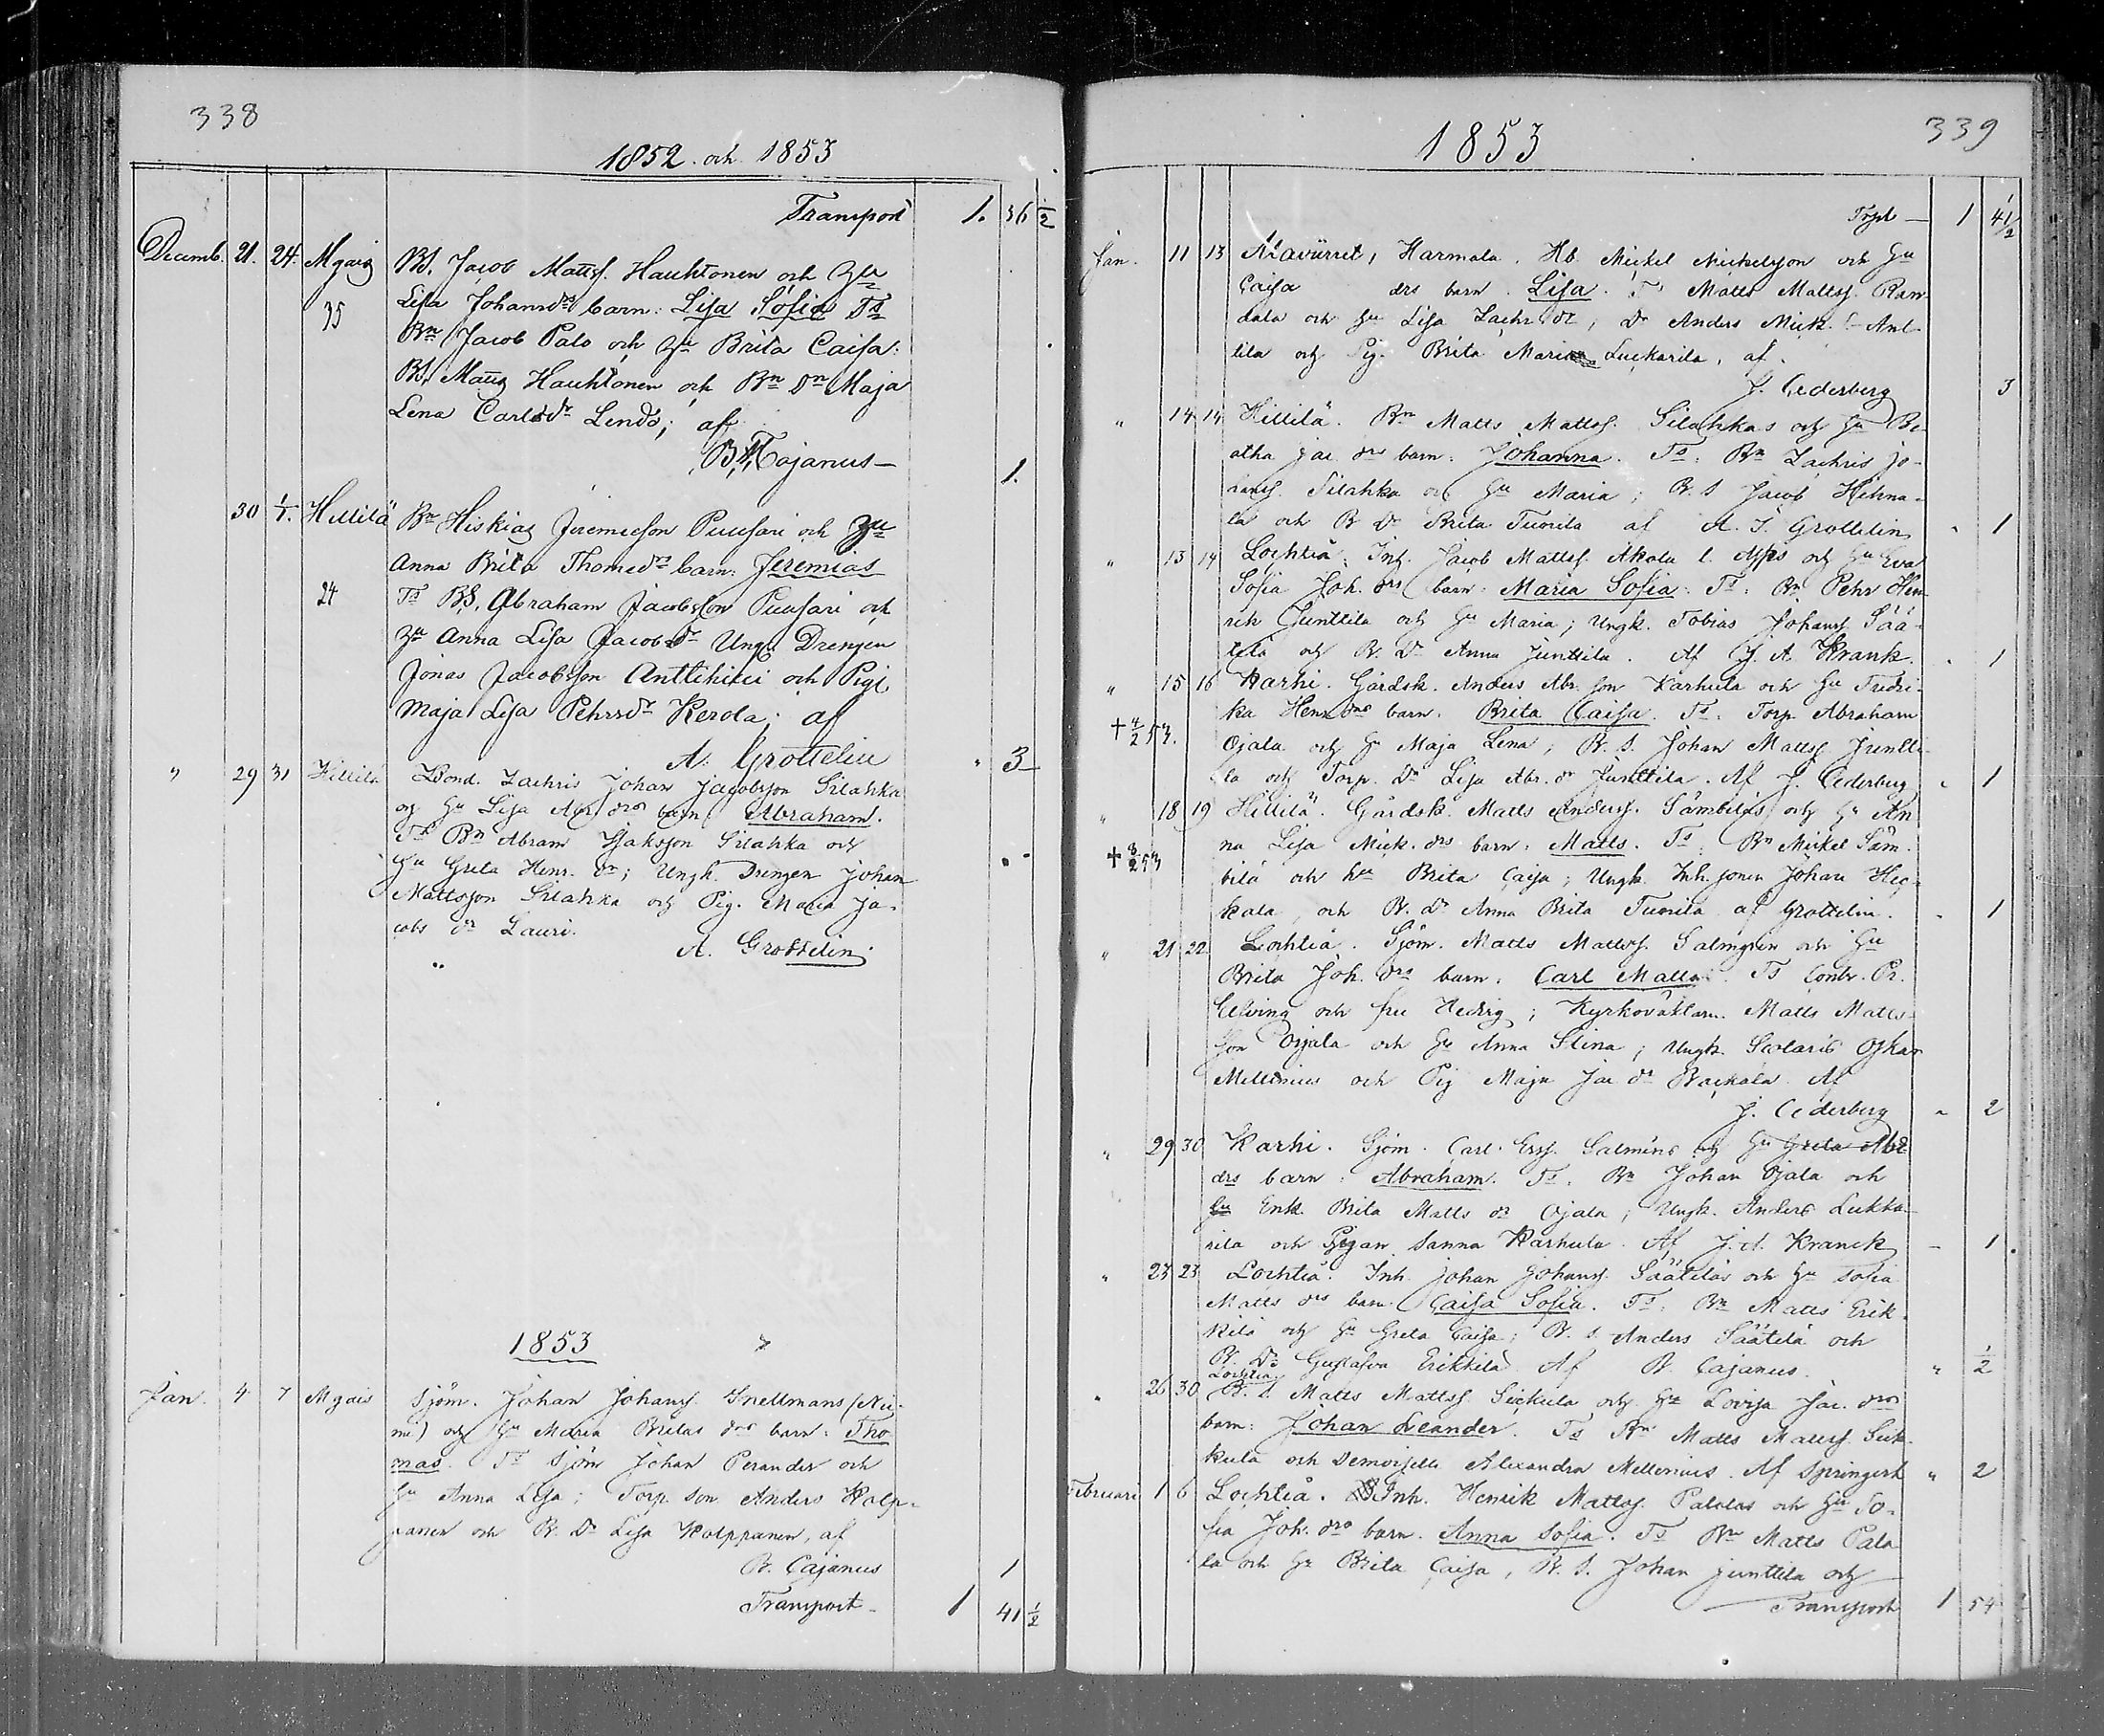 338
1852. och 1853
Transport 1. 36 1/2
Decemb. 21. 24. Mgaış BS. Jacob Mattss. Hauhtonen och Hu
35 Lisa Johansdrs barn: Lisa Sofia Ts
Bn Jacob Palo och Hu Brita Caisa:
BS. Matts Hauhtonen och Bn Dn Maja
Lena Carlsdr Lends; af
B. Cajanus— 1.
30 1/1. Hillilä Bn Hiskias Jeremiesson Puusari och Hu
Anna Brita Thomædrs barn: Jeremias
24 Ts BS. Abraham Jacobsson Puusari och
Hu Anna Lisa Jacobsdr Ungk. Drengen
Jonas Jacobsson Anttihikii och Pig.
Maja Lisa Pehrsdr Kerola; af
A. Grottelin " 3
" 29 31 Hillilä Bond. Zachris Johan Jacobsson Silahka
och Hu Lisa Abr. drs barn Abraham.
Ts Bn Abram Isaksson Silahka och
Hu Greta Henr. dr; Ungk. Drengen Johan
Mattsson Silahka och Pig. Maria Ja-
cobs dr Lauri.
A. Grottelin.
1853
Jan. 4 7 Mgais Sjöm. Johan Johanss. Snellmans (Nie-
mi) och Hu Maria Britas drs barn: Tho
mas. Ts Sjöm Johan Perander och
Hu Anna Lisa; Torp. son Anders Holp-
panen och B. Dr Lisa Holppanen, af
B. Cajanus 1
Transport— 1 41 1/2
339
1853
Trspt — 1 41/2
Jan. 11 13 Harmala. Hb. Mickel Mickelsson och Hu
Caisa drs barn. Lisa. Ts Matts Mattss. Ran-
dala och Hu Lisa Zachr. dr; Dr Anders Mick. s. Ant-
tila och Pig. Brita Maria Luckarila, af.
J. Cederberg 3
" 14 14 Hillilä. Bn Matts Mattss. Silahkas och Hu Be-
atha Jac. drs barn: Johanna. Ts: Bn Zachris Jo-
hanss. Silahka och Hu Maria; B. S Jacob Hihna-
la och B Dr Brita Tuorila af A. J. Grottelin " 1
" 13 14 Lochteå: Inh. Jacob Mattss. Akola och Hu Eva
Sofia Joh. drs barn: Maria Sofia: Ts: Bn Pehr Hen-
rik Junttila och Hu Maria; Ungk. Tobias Johanss Sää-
telä och B. Dr Anna Junttila. Af J. A. Krank. " 1
" 15 16 Karhi. Gårdsk. Anders Abr. son Karhula och Hu Fredri-
+ 4/2 53. ka Henr. drs barn. Brita Caisa. Ts: Torp. Abraham
Ojala och Hu Maja Lena; B. S. Johan Mattss. Juntti-
la och Torp. Dr Lisa Abr. dr Junttila. Af J. Cederberg " 1
" 18 19 Hillilä. Gårdsk. Matts Anderss. Sämbiläs och Hu An
+ 8/2 53 na Lisa Mick. drs barn: Matts. Ts: Bn Mickel Säm-
bilä och Hu Brita Caisa; Ungk. Inh. sonen Johan Hic-
kala, och B. dr Anna Brita Tuorila af Grottelin. " 1
" 21 22 Lochteå. Sjöm. Matts Mattss. Salmgren och Hu
Brita Joh. drs barn: Carl Matts. Ts Contr. Pr.
Elfving och fru Hedvig; Kyrkoväktarn. Matts Matts-
son Ojala och Hu Anna Stina; Ungk. Scolaris Oskar
Mellenius och Pig Maja Jac dr Backala. Af
J. Cederberg " 2
" 29 30 Karhi. Sjöm. Carl. Erss. Salmins och Hu Greta Abr
drs barn: Abraham. Ts: Bn Johan Ojala och
Hu Enk. Brita Matts dr Ojala; Ungk. Anders Lukka-
rila och Pigan Sanna Karhula. Af J. A. Kranck — 1.
" 23 23 Lochteå. Inh. Johan Johanss. Säätelas och Hu Sofia
Matts drs barn: Caisa Sofia. Ts: Bn Matts Erik-
kilä och Hu Greta Caisa; B. s Anders Säätelä och
B. Dr Gustafva Erikkilä. Af B. Cajanus. " 1/2
Lochteå
" 26 30 B. s. Matts Mattss. Sickula och Hu Lovisa Jac. drs
barn: Johan Leander. Ts Bn Matts Mattss. Sick-
kula och Demoiselle Alexandra Mellenius. Af Springert " 2
Februari 1 6 Lochteå. Inh. Henrik Mattss. Palolas och Hu So-
fia Joh. drs barn. Anna Sofia. Ts Bn Matts Palo
la och Hu Brita Caisa, B. S. Johan Junttila och
Transport 1 54